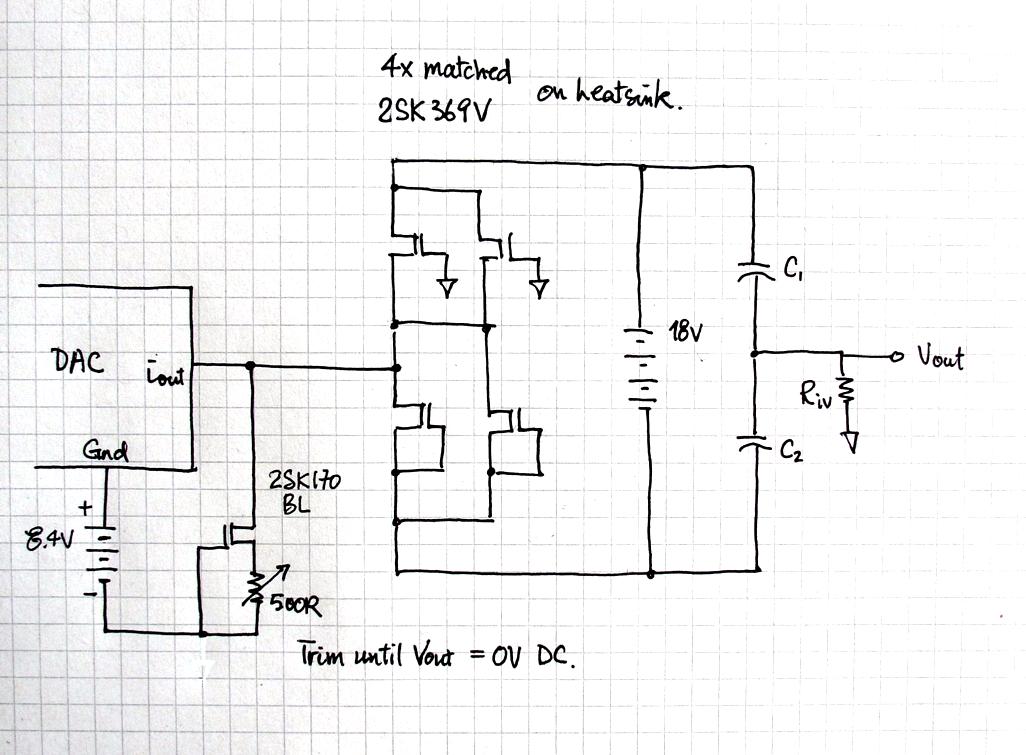 4x matched
2SK369V
on heatsink.
C₁
18V
DAC
iout
Vout
Riv
Gnd
C₂
2SK170
BL
+
8.4V
-
500R
Trim until Vout = 0V DC.